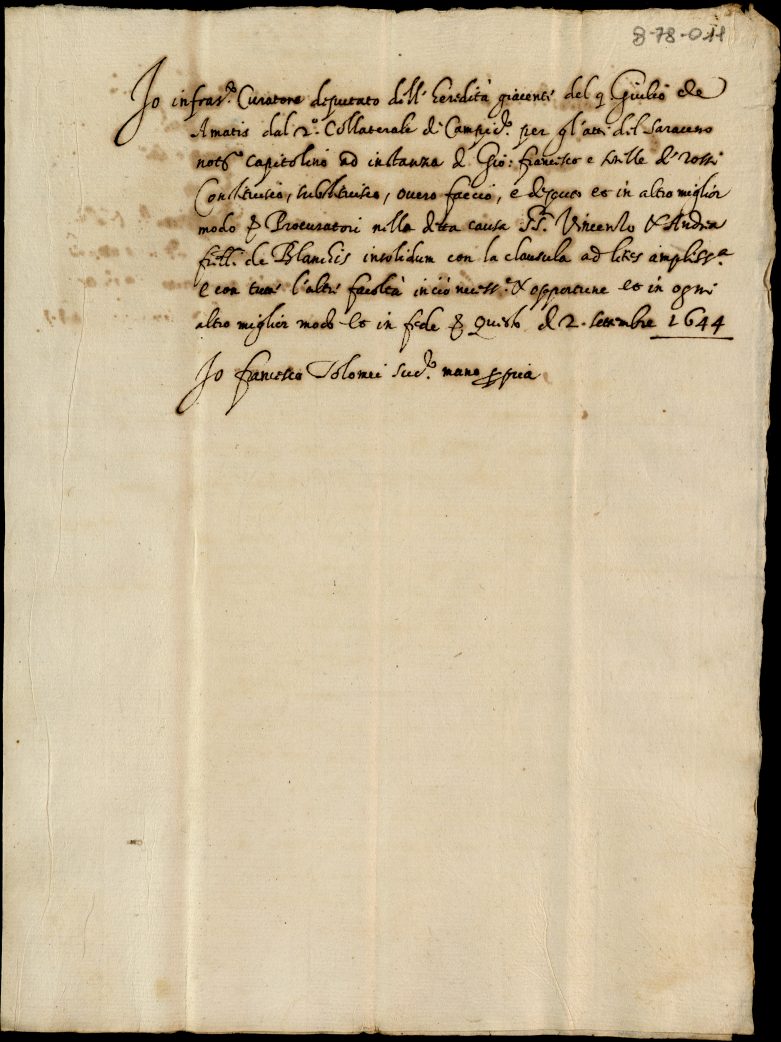 8-78-011
Io infras.to Curatore deputato dell' heredità giacente del q Giulio de
Amatis dal 2.o Collaterale di Campid.o per gl'atti del Saraceno
not.o Capitolino ad instanza di Gio: francesco e de Rossi
Constituisco, substituisco, overo faccio, e deputo et in altro miglior
modo Procuratori nella detta causa SS.ri Vincenzo & Andrea
fr̃lli de Blanchis insolidum con la clausula ad lites ampliss.a
e con tutte l'altre facoltà in ciò necess.e & opportune et in ogni
altro miglior modo et in fede Questo dì 2. settembre 1644
Io francesco Tolomei sud.o mano ppria